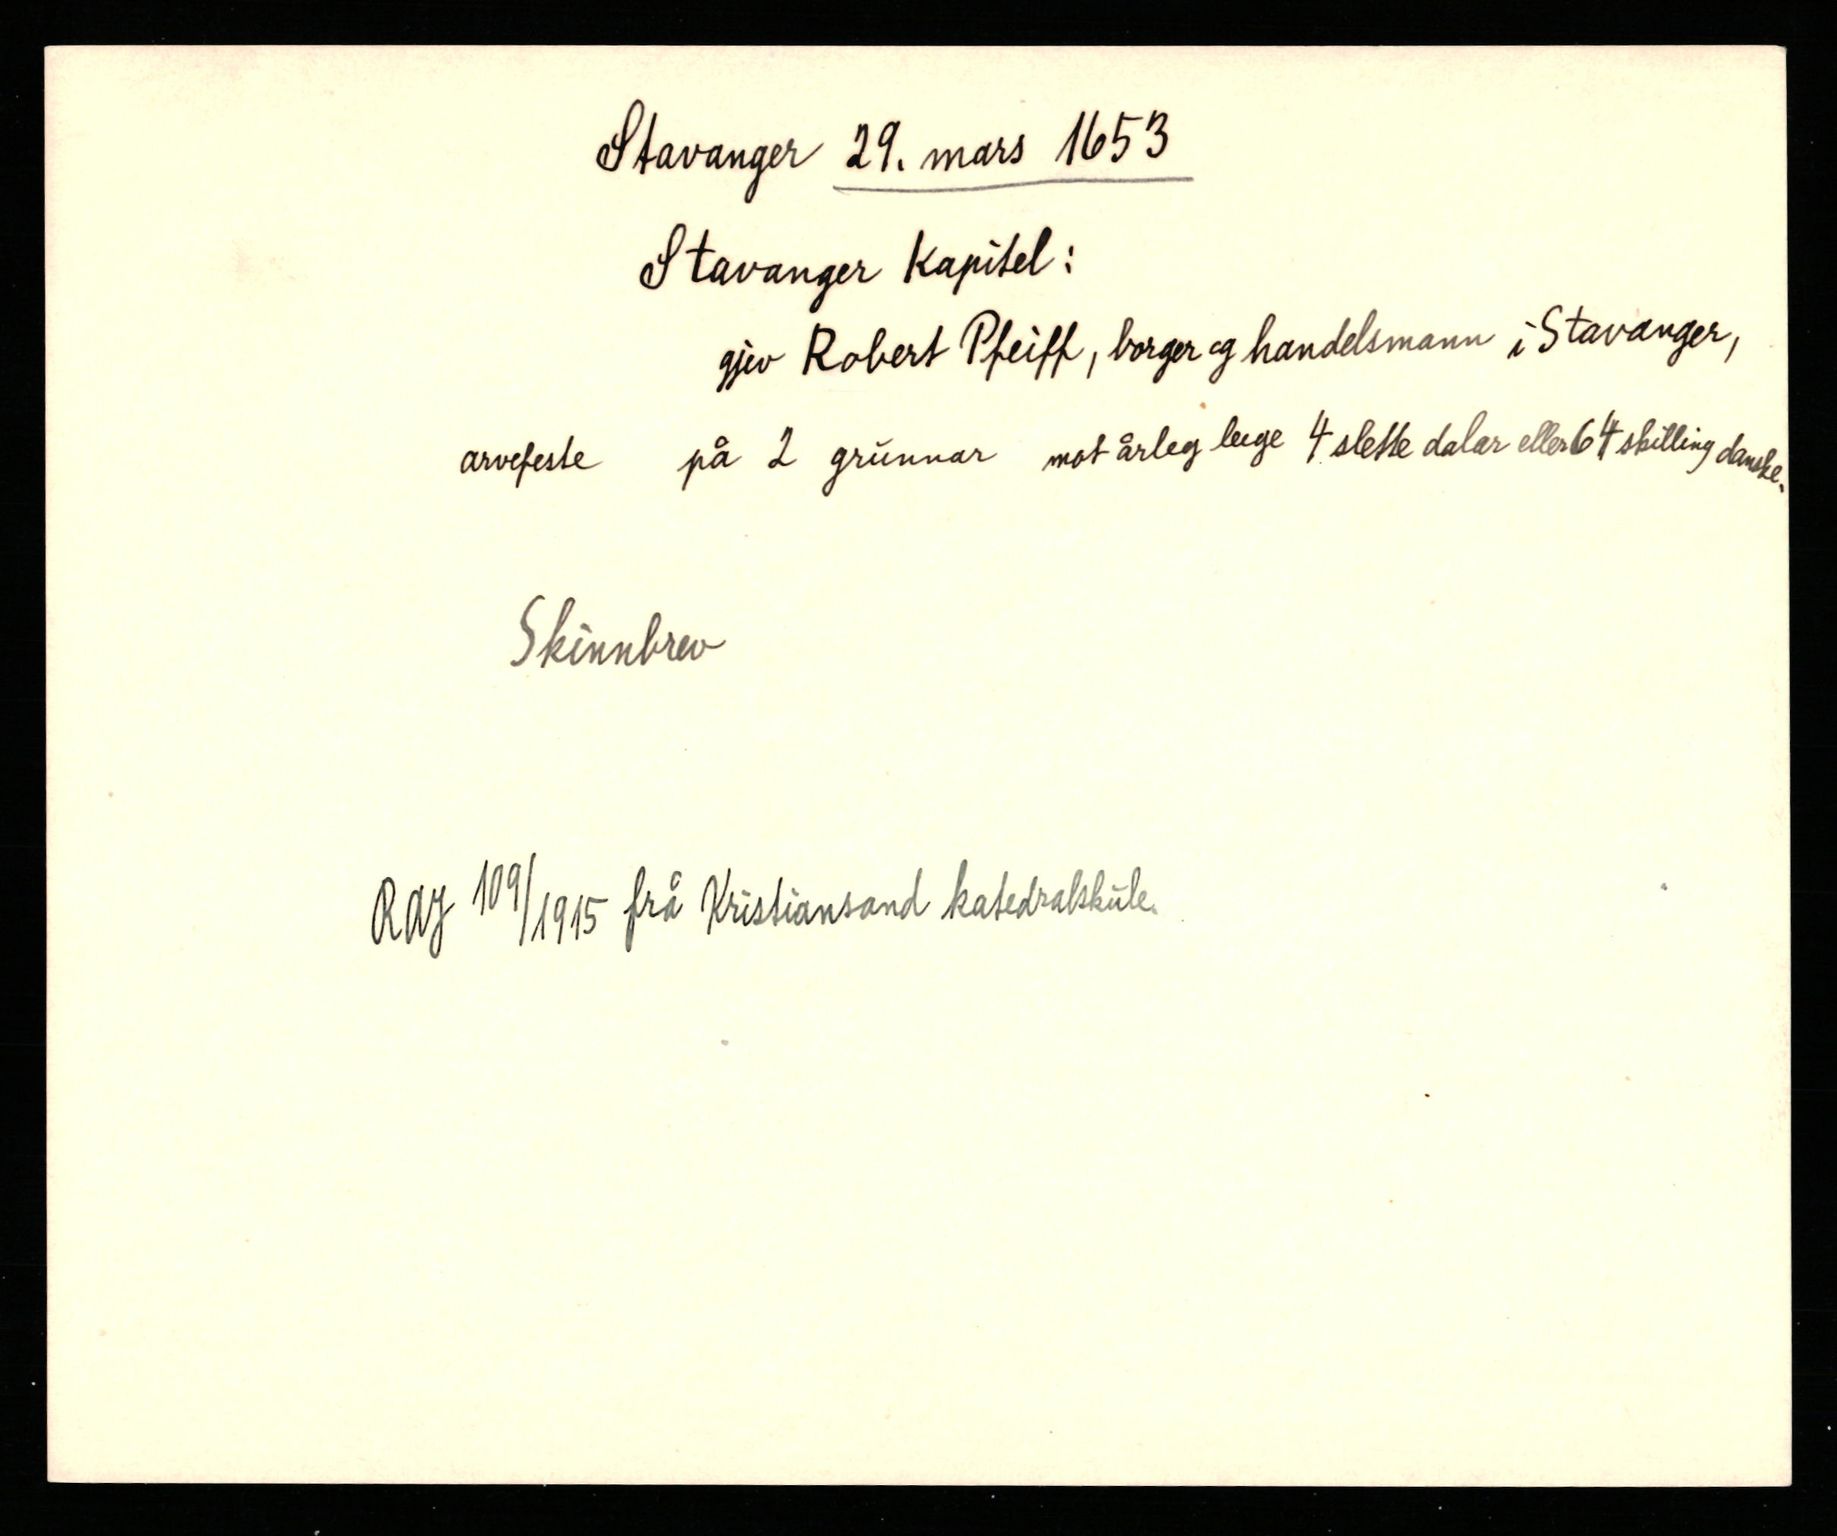 Stavanger 29. mars 1653
Stavanger Kapitel:
gjev Robert Pfeiff, borger og handelsmann i Stavanger,
arvefeste på 2 grunnar mot årleg leige 4 slette dalar eller 64 skilling danske.
Skinnbrev
RAJ 109/1915 frå Kristiansand katedralskule.